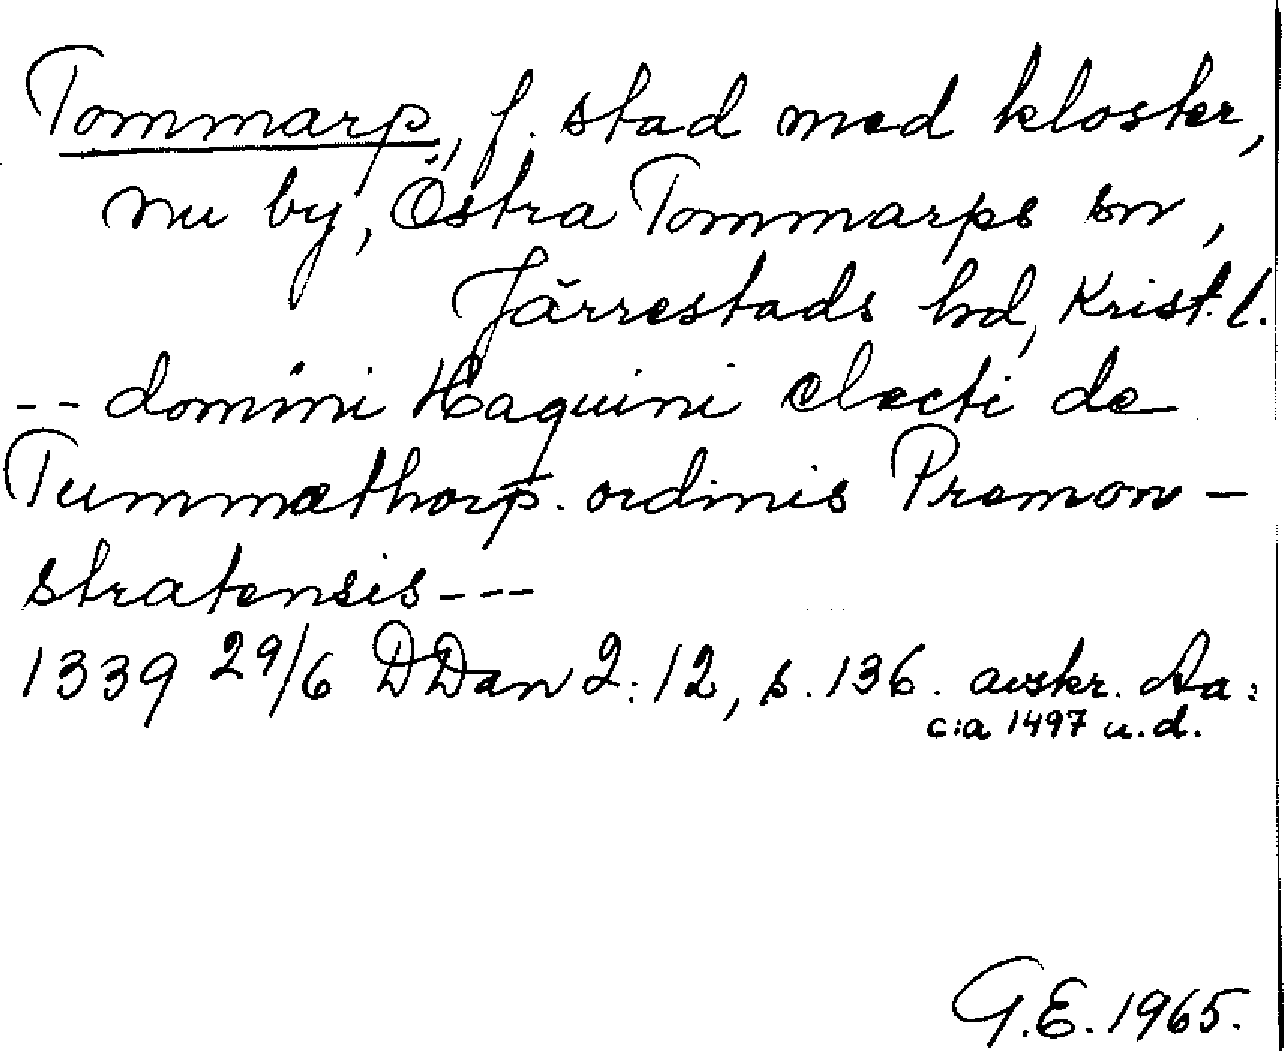 Tommarp, f. stad med kloster,
nu by, Östra Tommarps sn,
Järrestads hd, Krist. l.
-- domini Haquini electi de
Tummathorp. ordinis Premon-
stratensis ---
1339 29/6 DDan 2:12, s. 136. avskr. Aa:
c:a 1497 u.d.
G.E. 1965.